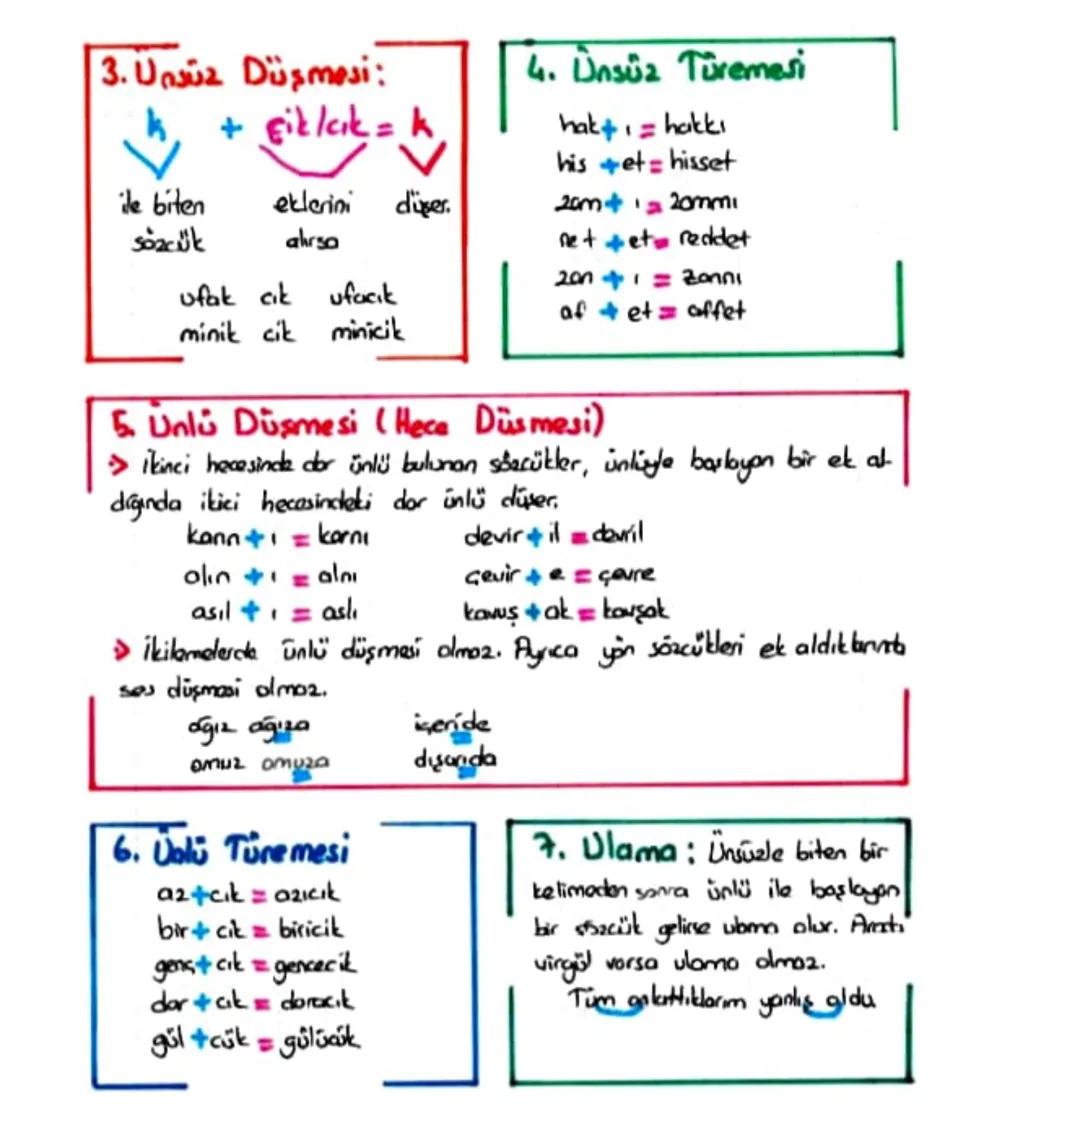 3. Ünsüz Düşmesi:
k + çik/cık = k
ile biten eklerini düşer.
sözcük alırsa
ufak cık ufacık
minik cik minicik
4. Ünsüz Türemesi
hak + ı = hakkı
his + et = hisset
zam + ı = zammı
ret + et = reddet
zan + ı = zannı
af + et = affet
5. Ünlü Düşmesi (Hece Düşmesi)
> İkinci hecesinde dar ünlü bulunan sözcükler, ünlüyle başlayan bir ek al-
dığında ikici hecesindeki dar ünlü düşer.
karın + ı = karnı
alın + ı = alnı
asıl + ı = aslı
devir + il = devril
çevir + e = çevre
kavuş + ak = kavşak
> İkilemelerde ünlü düşmesi olmaz. Ayrıca yön sözcükleri ek aldıklarında
ses düşmesi olmaz.
ağız ağıza içeride
omuz omuza dışarıda
6. Ünlü Türemesi
az + cık = azıcık
bir + cik = biricik
genç + cik = gencecik
dar + cık = daracık
gül + cük = gülücük
7. Ulama: Ünsüzle biten bir
kelimeden sonra ünlü ile başlayan
bir sözcük gelirse ulama olur.
virgül varsa ulama olmaz.
Tüm anlattıklarım yanlış oldu